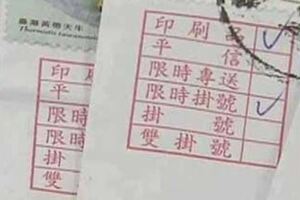 臺灣黃腹天牛
Thermistis taiwanensis
印刷品
平信
限時專送
限時掛號
掛號
雙掛號
印
平
限時
限時
掛
雙